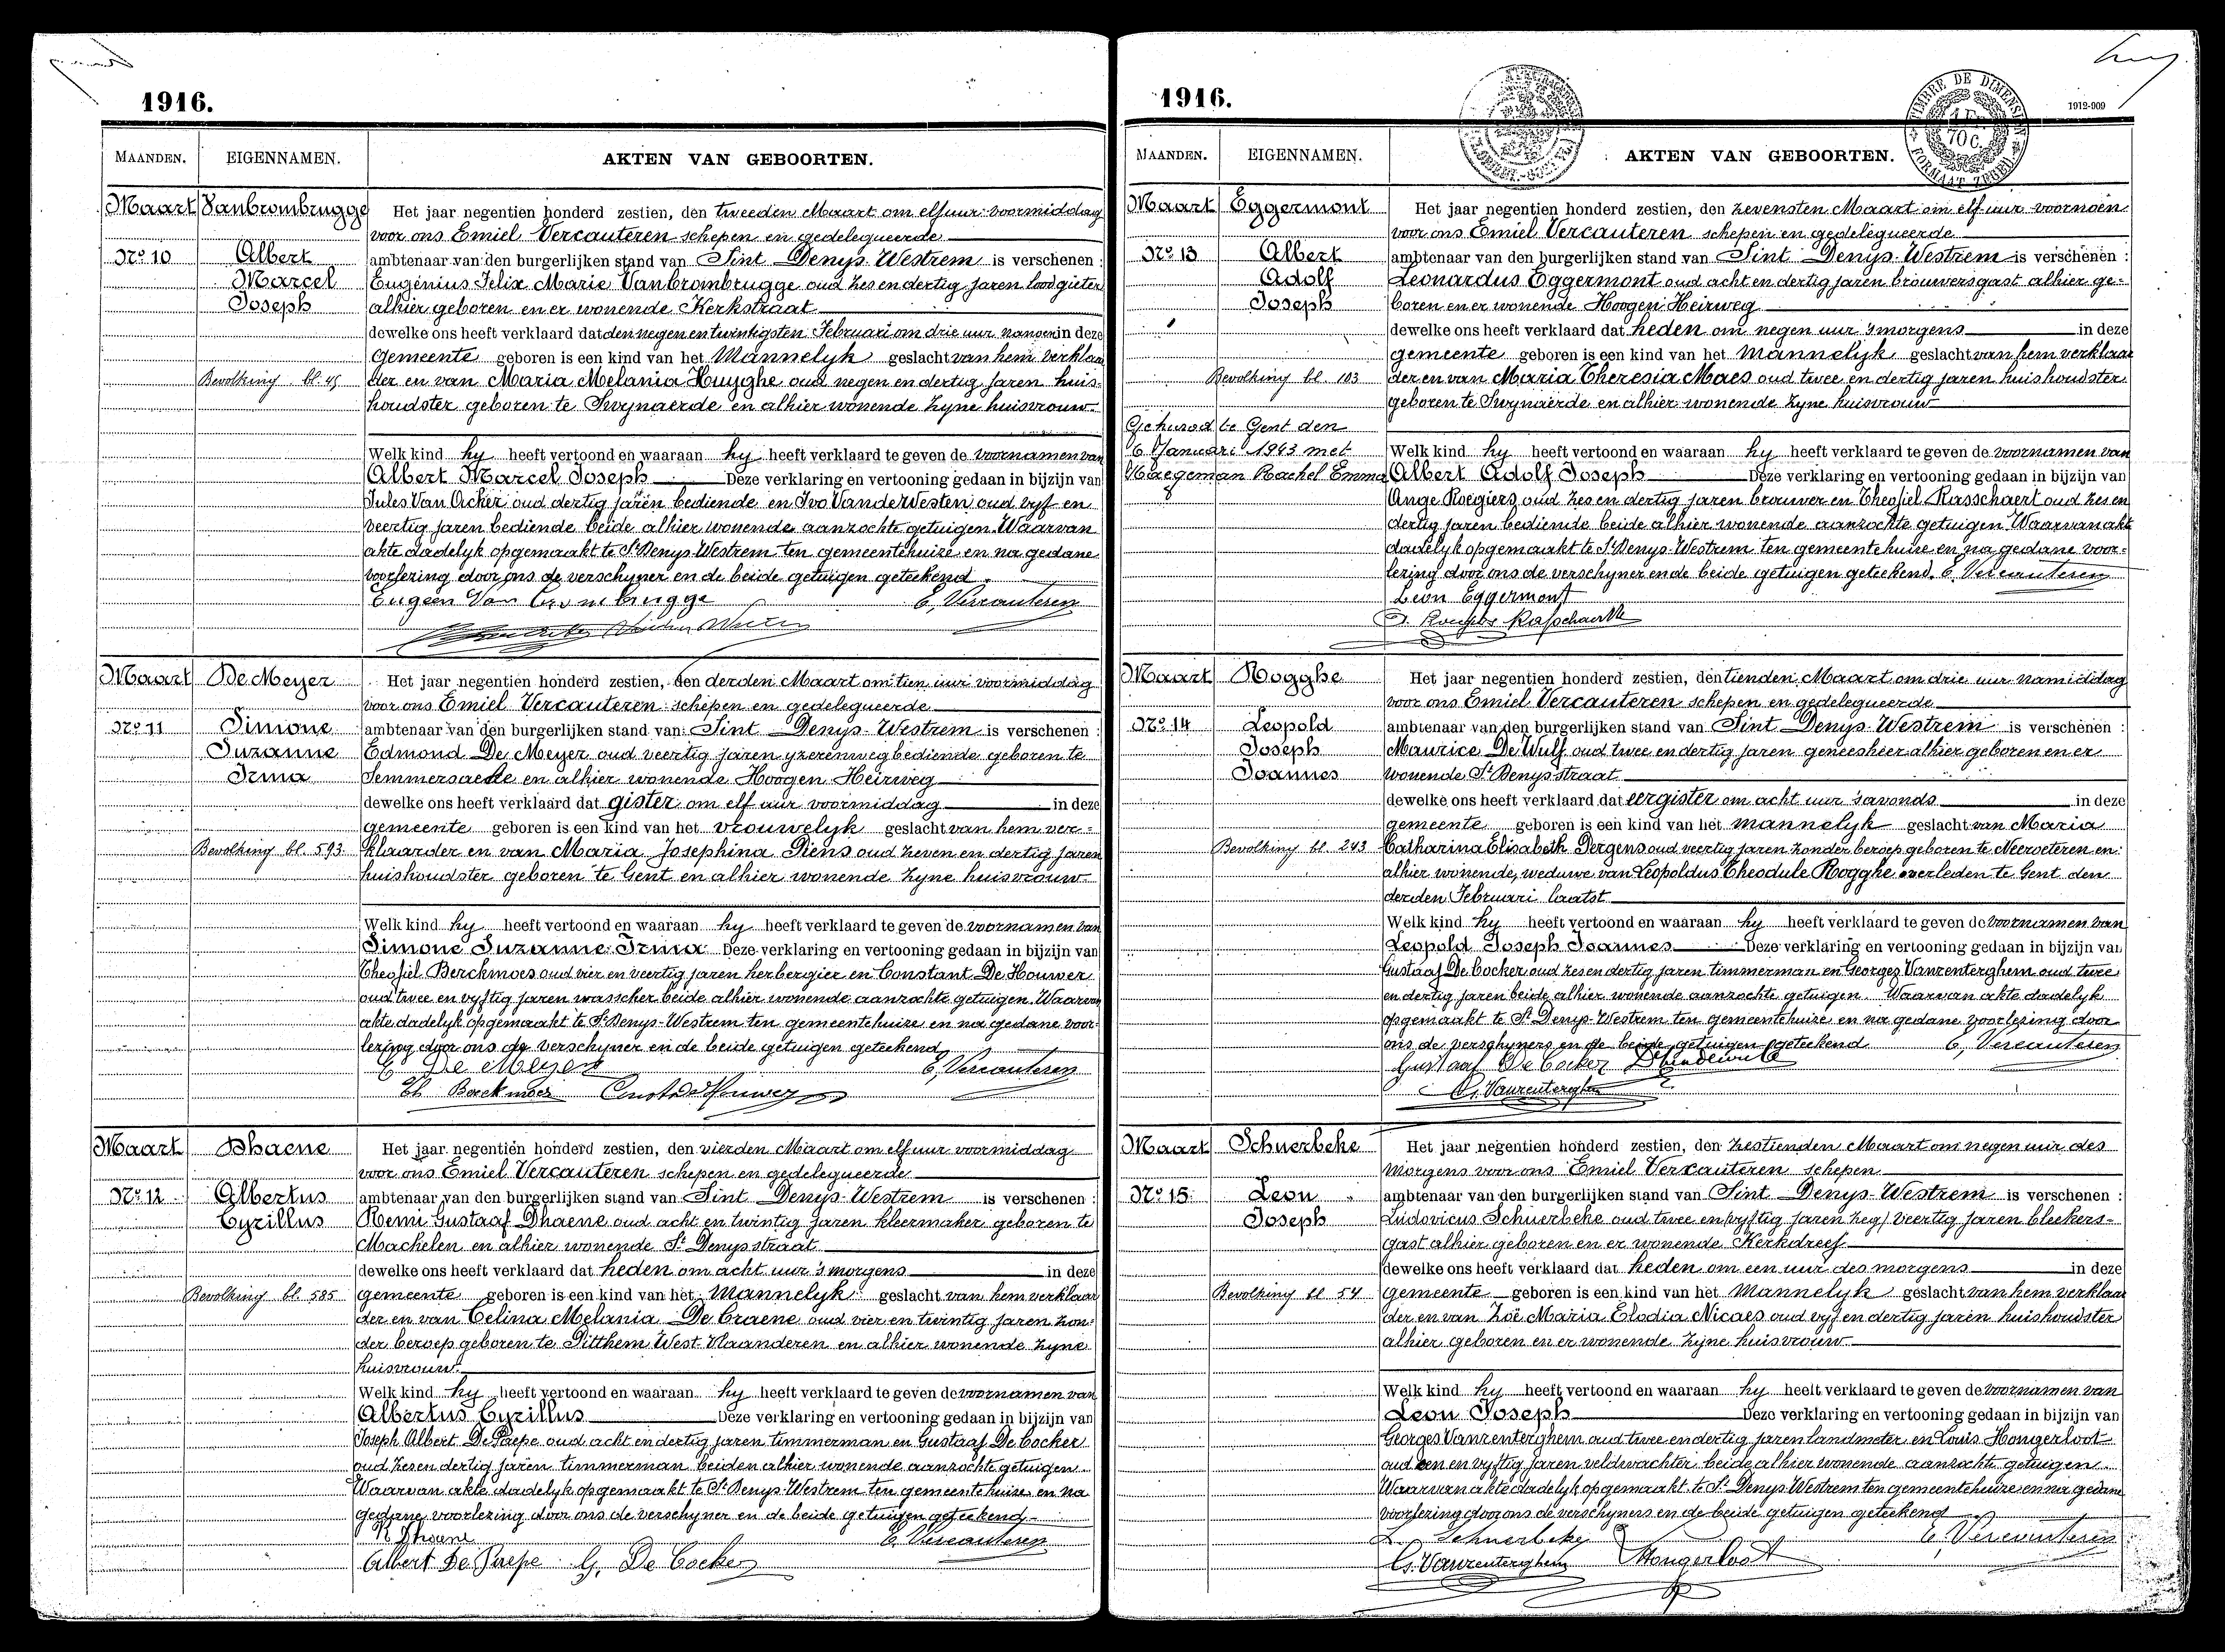 1916.
MAANDEN. EIGENNAMEN. AKTEN VAN GEBOORTEN.
Maart Vanbrombrugge Het jaar negentien honderd zestien, den tweeden Maart om elf uur voormiddag
voor ons Emiel Vercauteren schepen en gedelegueerde
No 10 Albert ambtenaar van den burgerlijken stand van Sint Denys-Westrem is verschenen :
Marcel Eugénius Felix Marie Vanbrombrugge oud zes en dertig jaren loodgieter
Joseph alhier geboren en er wonende Kerkstraat
dewelke ons heeft verklaard dat den negen en twintigsten Februari om drie uur namen in deze
gemeente geboren is een kind van het Mannelyk geslacht van hem verklaar
Bevolking bl. 45 der en van Maria Melania Huyghe oud negen en dertig jaren huis-
houdster geboren te Swynaerde en alhier wonende zyne huisvrouw.
Welk kind hy heeft vertoond en waaraan hy heeft verklaard te geven de voornamen van
Albert Marcel Joseph Deze verklaring en vertooning gedaan in bijzijn van
Jules Van Acker oud dertig jaren bediende en Ivo Vanderwesten oud vyf en
veertig jaren bediende beide alhier wonende aanzochte getuigen. Waarvan
akte dadelyk opgemaakt te St Denys-Westrem ten gemeentehuize en na gedane
voorlezing door ons de verschyner en de beide getuigen geteekend.
Eugeen Van Brombrugge E, Vercauteren
Maart De Meyer Het jaar negentien honderd zestien, den derden Maart om tien uur voormiddag
voor ons Emiel Vercauteren schepen en gedelegueerde
No 11 Simone ambtenaar van den burgerlijken stand van Sint Denys-Westrem is verschenen :
Suzanne Edmond De Meyer oud veertig jaren yzerenweg bediende geboren te
Irma Semmersaeke en alhier wonende Hoogen Heirweg
dewelke ons heeft verklaard dat gister om elf uur voormiddag in deze
gemeente geboren is een kind van het vrouwelyk geslacht van hem ver-
Bevolking bl. 593 klaarder en van Maria Josephina Piens oud zeven en dertig jaren
huishoudster geboren te Gent en alhier wonende zyne huisvrouw.
Welk kind hy heeft vertoond en waaraan hy heeft verklaard te geven de voornamen van
Simone Suzanne Irma Deze verklaring en vertooning gedaan in bijzijn van
Theofiel Berckmoes oud vier en veertig jaren herbergier en Constant De Houwer
oud twee en vyftig jaren wasscher beide alhier wonende aanzochte getuigen. Waarvan
akte dadelyk opgemaakt te St Denys-Westrem ten gemeentehuize en na gedane voor-
lezing door ons de verschyner en de beide getuigen geteekend
E De Meyer E, Vercauteren
Th Berckmoes Const De Houwer
Maart Dhaene Het jaar negentien honderd zestien, den vierden Maart om elf uur voormiddag
voor ons Emiel Vercauteren schepen en gedelegueerde
No 12 Albertus ambtenaar van den burgerlijken stand van Sint Denys-Westrem is verschenen :
Cyrillus Remi Gustaaf Dhaene oud acht en twintig jaren kleermaker geboren te
Machelen en alhier wonende St Denysstraat
dewelke ons heeft verklaard dat heden om acht uur 's morgens in deze
Bevolking bl. 585 gemeente geboren is een kind van het Mannelyk geslacht van hem verklaar
der en van Celina Melania De Craene oud vier en twintig jaren zon-
der beroep geboren te Pitthem West-Vlaanderen en alhier wonende zyne
huisvrouw.
Welk kind hy heeft vertoond en waaraan hy heeft verklaard te geven de voornamen van
Albertus Cyrillus Deze verklaring en vertooning gedaan in bijzijn van
Joseph Albert De Paepe oud acht en dertig jaren timmerman en Gustaaf De Cocker
oud zes en dertig jaren timmerman beiden alhier wonende aanzochte getuigen.
Waarvan akte dadelyk opgemaakt te St Denys-Westrem ten gemeentehuize en na
gedane voorlezing door ons de verschyner en de beide getuigen geteekend
R Dhaene E, Vercauteren
Albert De Paepe G, De Cocker
1916. 1912-909
TIMBRE DE DIMENSION
70 C.
FORMAAT ZEGEL
MAANDEN. EIGENNAMEN. AKTEN VAN GEBOORTEN.
Maart Eggermont Het jaar negentien honderd zestien, den zevensten Maart om elf uur voornoen
voor ons Emiel Vercauteren schepen en gedelegueerde
No 13 Albert ambtenaar van den burgerlijken stand van Sint Denys-Westrem is verschenen :
Adolf Leonardus Eggermont oud acht en dertig jaren brouwersgast alhier ge-
Joseph boren en er wonende Hoogen Heirweg
dewelke ons heeft verklaard dat heden om negen uur 's morgens in deze
gemeente geboren is een kind van het mannelyk geslacht van hem verklaar
Bevolking bl. 103 der en van Maria Theresia Maes oud twee en dertig jaren huishoudster
geboren te Swynaerde en alhier wonende zyne huisvrouw
Gehuwd te Gent den
6 Januari 1943 met Welk kind hy heeft vertoond en waaraan hy heeft verklaard te geven de voornamen van
Haegeman Rachel Emma Albert Adolf Joseph Deze verklaring en vertooning gedaan in bijzijn van
Ange Roegiers oud zes en dertig jaren brouwer en Theofiel Rasschaert oud zes en
dertig jaren bediende beide alhier wonende aanzochte getuigen. Waarvan akte
dadelyk opgemaakt te St Denys-Westrem ten gemeentehuize en na gedane voor-
lezing door ons de verschyner en de beide getuigen geteekend. E, Vercauteren
Leon Eggermont
Maart Rogghe Het jaar negentien honderd zestien, den tienden Maart om drie uur namiddag
voor ons Emiel Vercauteren schepen en gedelegueerde
No 14 Leopold ambtenaar van den burgerlijken stand van Sint Denys-Westrem is verschenen :
Joseph Maurice De Wulf oud twee en dertig jaren geneesheer alhier geboren en er
Joannes wonende St Denysstraat
dewelke ons heeft verklaard dat eergister om acht uur 's avonds in deze
gemeente geboren is een kind van het mannelyk geslacht van Maria
Bevolking bl. 243 Catharina Elisabeth Dergens oud veertig jaren zonder beroep geboren te Neeroeteren en
alhier wonende, weduwe van Leopoldus Theodule Rogghe overleden te Gent den
derden Februari laatst
Welk kind hy heeft vertoond en waaraan hy heeft verklaard te geven de voornamen van
Leopold Joseph Joannes Deze verklaring en vertooning gedaan in bijzijn van
Gustaaf De Cocker oud zes en dertig jaren timmerman en Georges Vanzenterghem oud twee
en dertig jaren beide alhier wonende aanzochte getuigen. Waarvan akte dadelyk
opgemaakt te St Denys-Westrem ten gemeentehuize en na gedane voorlezing door
ons de verschyners en de beide getuigen geteekend E, Vercauteren
Gustaaf De Cocker
G. Vanzenterghem
Maart Schuerbeke Het jaar negentien honderd zestien, den zestienden Maart om negen uur des
morgens voor ons Emiel Vercauteren schepen
No 15 Leon ambtenaar van den burgerlijken stand van Sint Denys-Westrem is verschenen :
Joseph Ludovicus Schuerbeke oud twee en vyftig jaren zeg / veertig jaren bleekers-
gast alhier geboren en er wonende Kerkdreef
dewelke ons heeft verklaard dat heden om een uur des morgens in deze
Bevolking bl 54 gemeente geboren is een kind van het Mannelyk geslacht van hem verklaar
der en van Zoë Maria Elodia Nicaes oud vyf en dertig jaren huishoudster
alhier geboren en er wonende zijne huisvrouw
Welk kind hy heeft vertoond en waaraan hy heeft verklaard te geven de voornamen van
Leon Joseph Deze verklaring en vertooning gedaan in bijzijn van
Georges Vanzenterghem oud twee en dertig jaren landmeter en Louis Hongerloot
oud een en vyftig jaren veldwachter beide alhier wonende aanzochte getuigen.
Waarvan akte dadelyk opgemaakt te St Denys-Westrem ten gemeentehuize en na gedane
voorlezing door ons de verschyners en de beide getuigen geteekend
L. Schuerbeke E, Vercauteren
G. Vanzenterghem Hongerloot